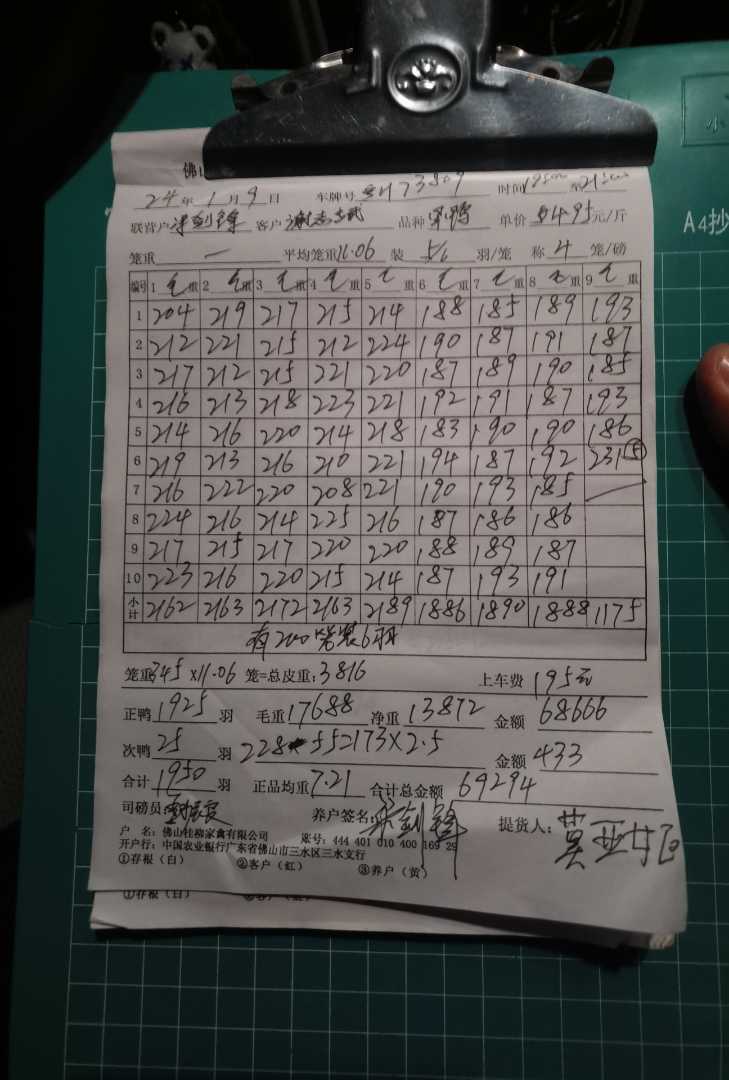 佛山
24年1月9日 车牌号 时间
联营户 客户 品种 单价 4.95元/斤
笼重 一 平均笼重11.06 装 5/6 羽/笼 称 4 笼/磅
编号 1 毛重 2 毛重 3 毛重 4 毛重 5 毛重 6 毛重 7 毛重 8 毛重 9 毛重
1 204 219 217 215 214 188 185 189 193
2 212 221 215 212 224 190 187 191 187
3 217 212 215 221 220 187 189 190 185
4 216 213 218 223 221 192 191 187 193
5 214 216 220 214 218 183 190 190 186
6 219 213 216 210 221 194 187 192 231 ⑤
7 216 222 220 208 221 190 193 185
8 224 216 214 225 216 187 186 186
9 217 215 217 220 220 188 189 187
10 223 216 220 215 214 187 193 191
小计 2162 2163 2172 2163 2189 1886 1890 1888 1175
有200笼装6羽
笼重345×11.06 笼=总皮重:3816 上车费 195元
正鸭 1925 羽 毛重 17688 净重 13872 金额 68666
次鸭 25 羽 228 55 173×2.5 金额 433
合计 1950 羽 正品均重 7.21 合计总金额 69294
司磅员: 养户签名: 提货人:
户 名:佛山桂柳家禽有限公司 账号:444 401 010 400 169 29
开户行:中国农业银行广东省佛山市三水区三水支行
①存根(白) ②客户(红) ③养户(黄)
①存根(白)
小
A4抄